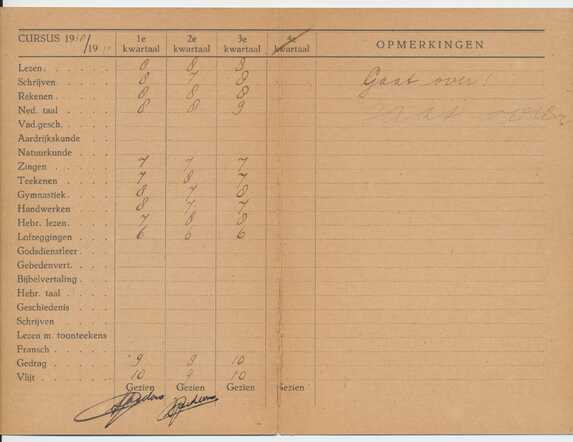 CURSUS 19 /19 1e kwartaal 2e kwartaal 3e kwartaal 4e kwartaal OPMERKINGEN
Lezen 8 8 9
Schrijven 8 7 8 Gaat over!
Rekenen 8 8 8
Ned. taal 8 8 9 Gaat over
Vad.gesch.
Aardrijkskunde
Natuurkunde
Zingen 7 7 7
Teekenen 7 8 7
Gymnastiek 8 7 8
Handwerken 8 7 7
Hebr. lezen 7 8 8
Lofzeggingen 6 6 6
Godsdienstleer
Gebedenvert.
Bijbelvertaling
Hebr. taal
Geschiedenis
Schrijven
Lezen m. toonteekens
Fransch
Gedrag 9 9 10
Vlijt 10 9 10
Gezien Gezien Gezien Gezien